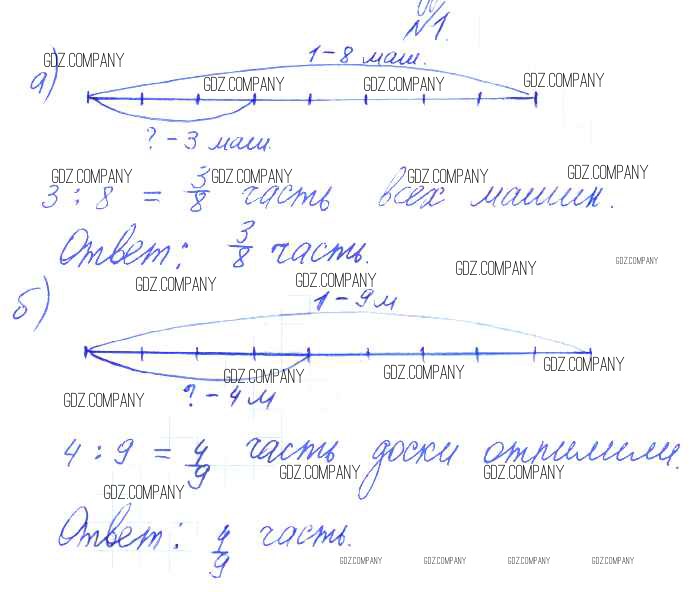 №1.
GDZ.COMPANY
1 - 8 маш.
а)
GDZ.COMPANY GDZ.COMPANY GDZ.COMPANY
? - 3 маш.
GDZ.COMPANY GDZ.COMPANY GDZ.COMPANY GDZ.COMPANY
3 : 8 = 3/8 часть всех машин.
Ответ: 3/8 часть.
GDZ.COMPANY GDZ.COMPANY
б)
GDZ.COMPANY GDZ.COMPANY
1 - 9 м
GDZ.COMPANY GDZ.COMPANY GDZ.COMPANY
? - 4 м
GDZ.COMPANY
4 : 9 = 4/9 часть доски отпилили.
GDZ.COMPANY GDZ.COMPANY
GDZ.COMPANY
Ответ: 4/9 часть.
GDZ.COMPANY GDZ.COMPANY GDZ.COMPANY GDZ.COMPANY